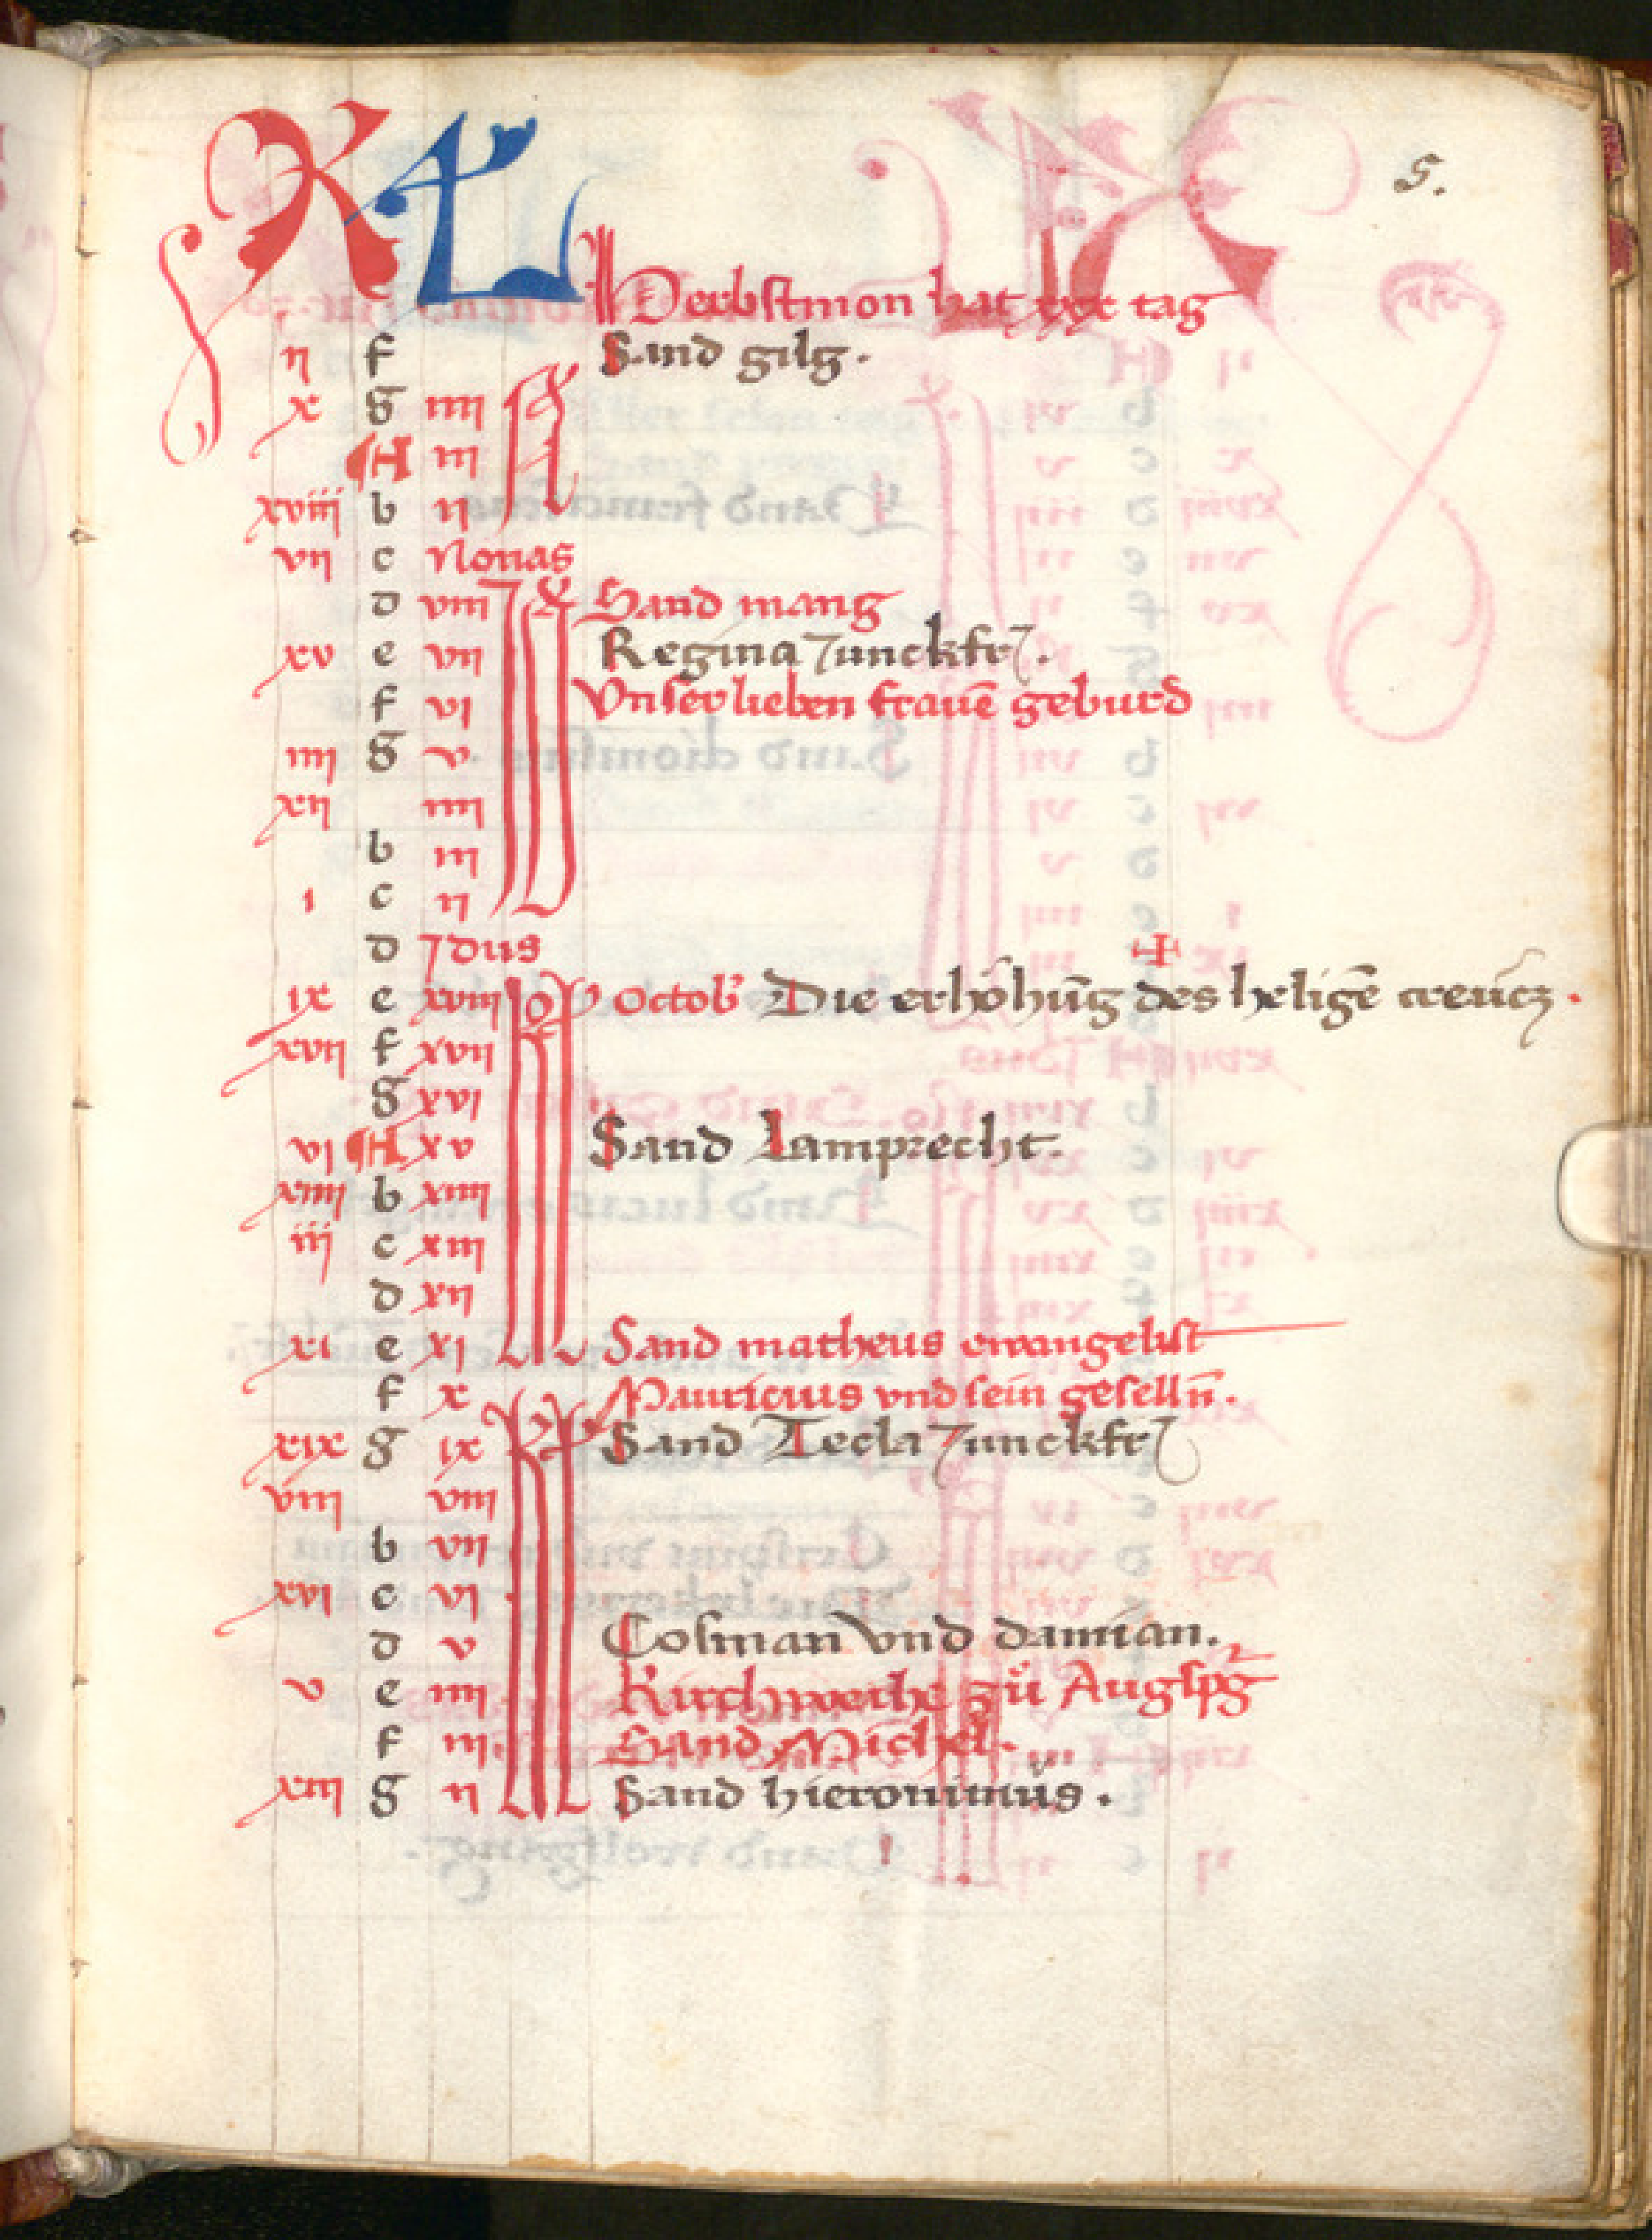 5.
KL Herbstmon hat xxx tag
ii f Sand gilg.
x g iiii
A iii
xviii b ii
vii c Nonas
d viii Jd Sand mang
xv e vii Regina Junckfr
f vi Vnser lieben frauē geburd
iiii g v
xii iiii
b iii
i c ii
d Jdus
ix e xviii kl Octob Die erhöhūg des heligē creücz.
xvii f xvii
g xvi
vi A xv Sand Lamprecht.
xiiii b xiiii
iii c xiii
d xii
xi e xi Sand matheus ewangelist
f x Mauricius vnd sein geselln̄.
xix g ix Sand Tecla Junckfr
viii viii
b vii
xvi c vi
d v Cosman vnd damian.
v e iiii Kirchweihe zů Augspg
f iii Sand Michel.
xiii g ii Sand hieronimus.